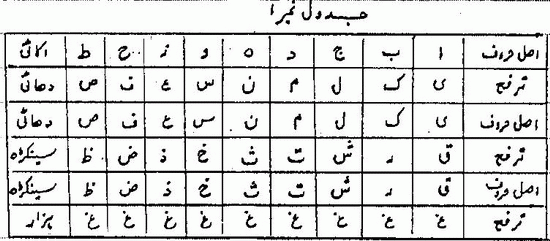 جدول نمبر ا
اصل حروف ا ب ج د ہ و ز ح ط اکائی
ترفع ی ک ل م ن س ع ف ص دھائی
اصل حروف ی ک ل م ن س ع ف ص دھائی
ترفع ق ر ش ت ث خ ذ ض ظ سینکڑہ
اصل حروف ق ر ش ت ث خ ذ ض ظ سینکڑہ
ترفع غ غ غ غ غ غ غ غ غ ہزار